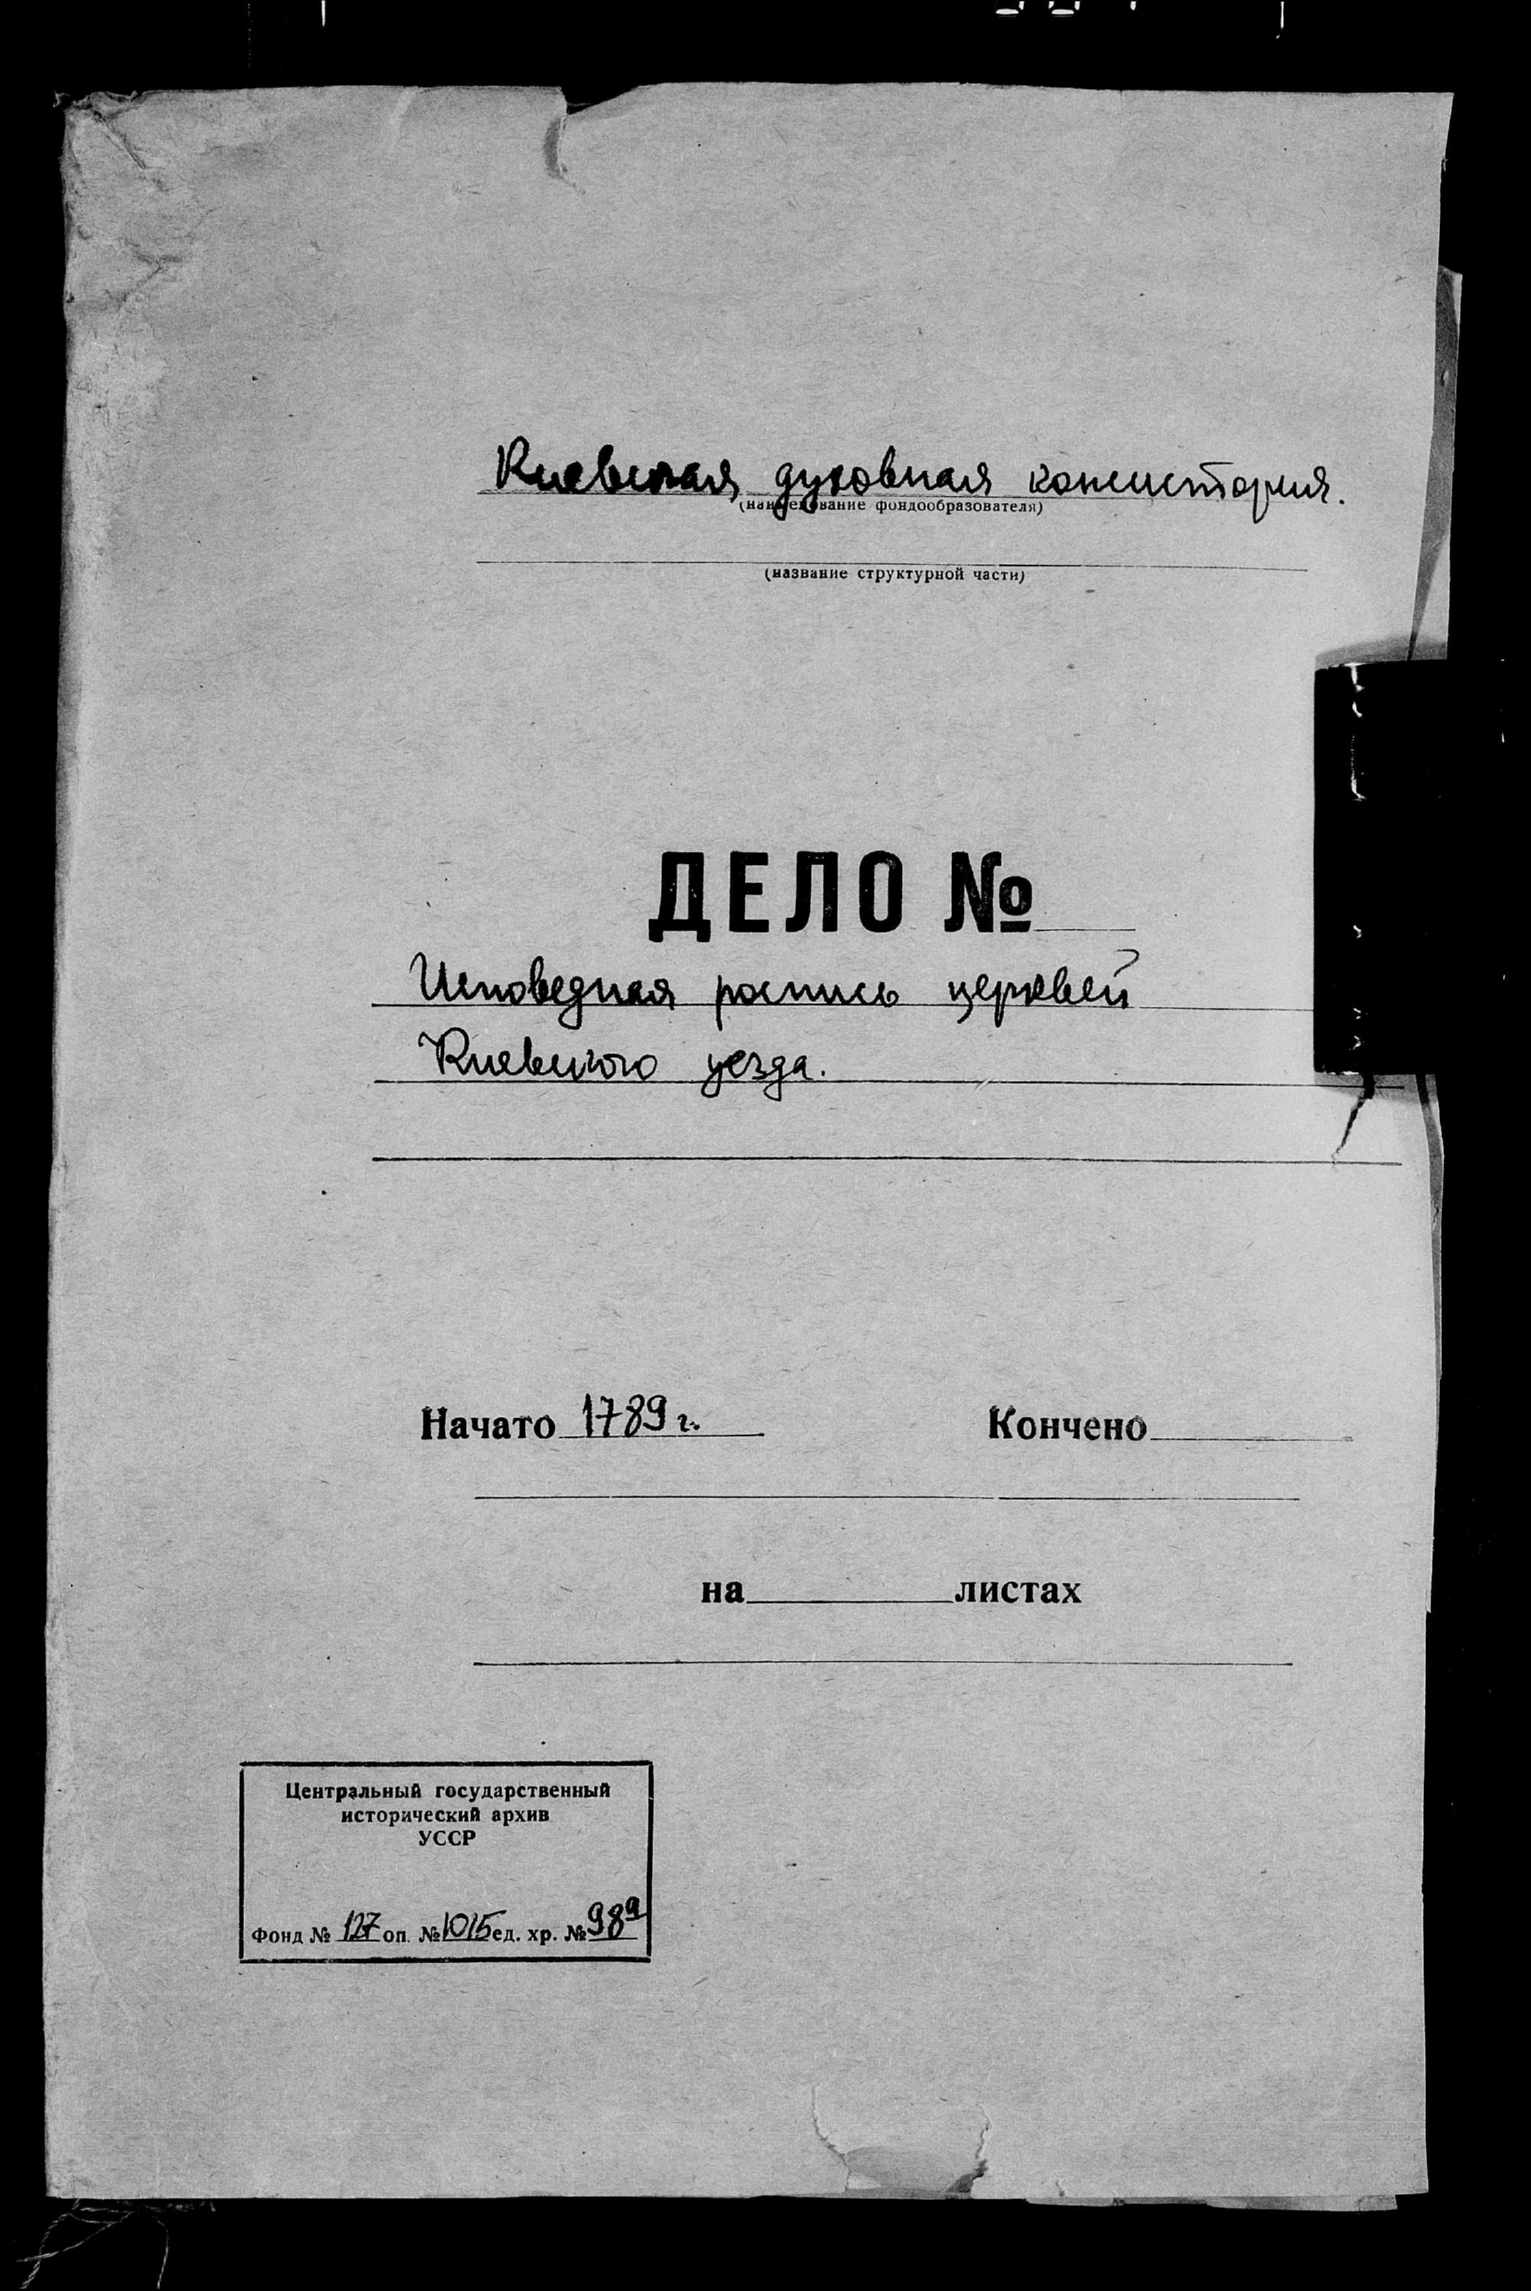 Киевская духовная консистория.
(наименование фондообразователя)
(название структурной части)
ДЕЛО №
Исповедная роспись церквей
Киевского уезда.
Начато 1789 г. Кончено
на листах
Центральный государственный
исторический архив
УССР
Фонд № 127 оп. № 1015 ед. хр. № 989